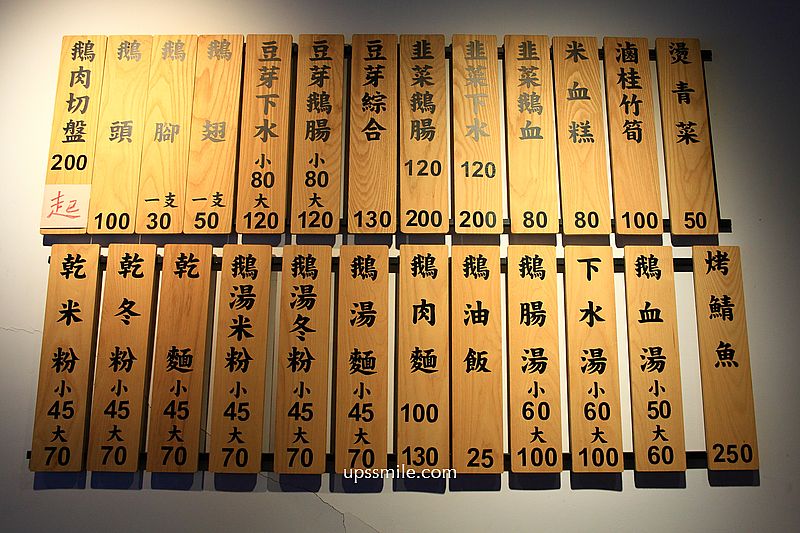 鵝肉切盤 200 起
鵝頭 100
鵝腳 一支 30
鵝翅 一支 50
豆芽下水 小 80 大 120
豆芽鵝腸 小 80 大 120
豆芽綜合 130
韭菜鵝腸 120 200
韭菜下水 120 200
韭菜鵝血 80
米血糕 80
滷桂竹筍 100
燙青菜 50
乾米粉 小 45 大 70
乾冬粉 小 45 大 70
乾麵 小 45 大 70
鵝湯米粉 小 45 大 70
鵝湯冬粉 小 45 大 70
鵝湯麵 小 45 大 70
鵝肉麵 100 130
鵝油飯 25
鵝腸湯 小 60 大 100
下水湯 小 60 大 100
鵝血湯 小 50 大 60
烤鯖魚 250
upssmile.com